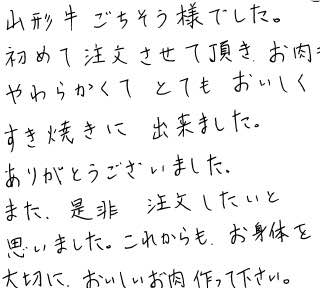 山形牛ごちそう様でした。
初めて注文させて頂き、お肉も
やわらかくて とても おいしく
すき焼きに 出来ました。
ありがとうございました。
また、是非 注文したいと
思いました。これからも、お身体を
大切に、おいしいお肉作って下さい。